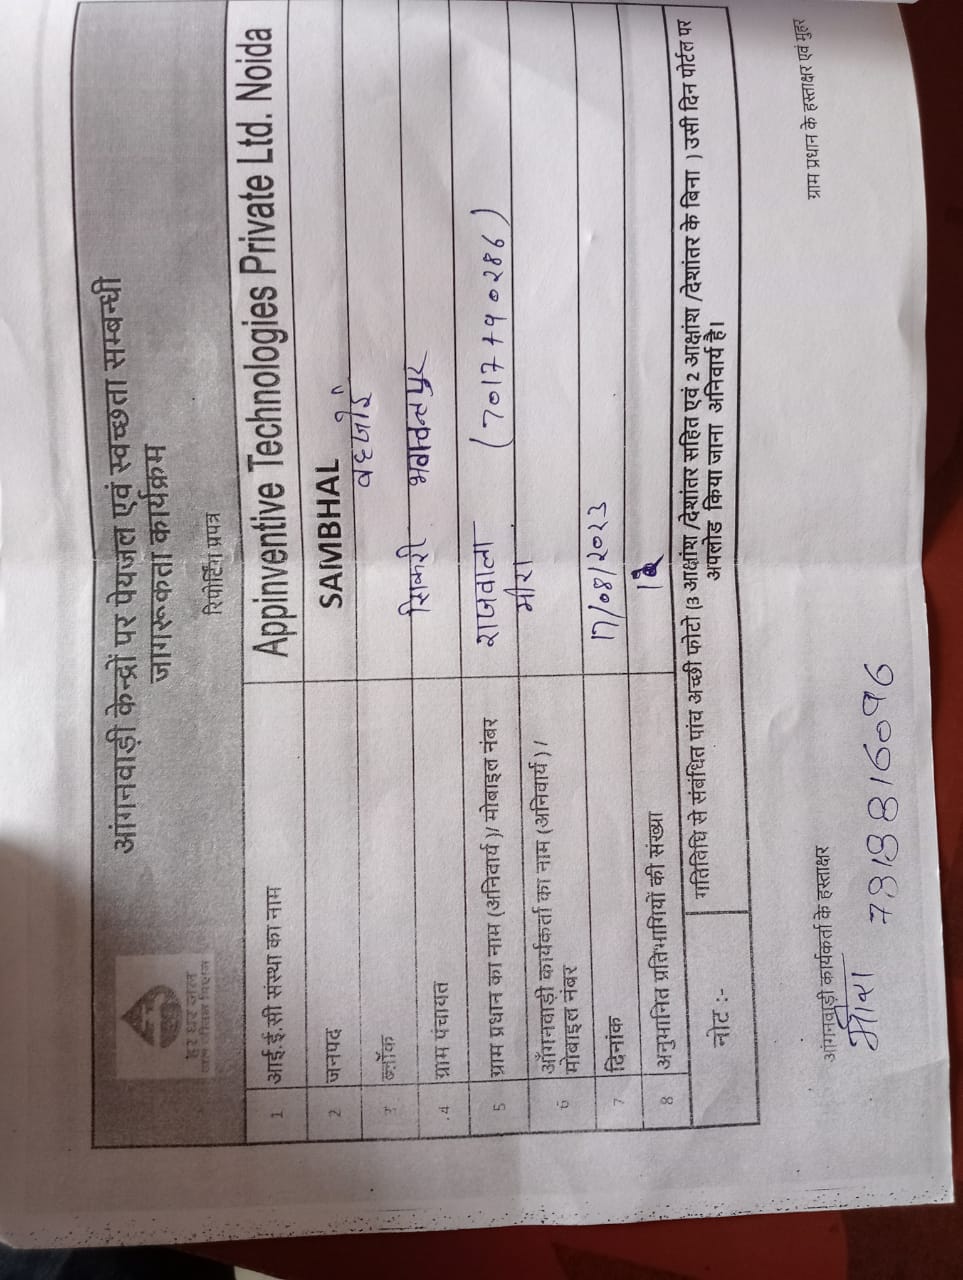 हर घर जल
जल जीवन मिशन
आंगनवाड़ी केन्द्रों पर पेयजल एवं स्वच्छता सम्बन्धी
जागरूकता कार्यक्रम
रिपोर्टिंग प्रपत्र
1 आई.ई.सी संस्था का नाम Appinventive Technologies Private Ltd. Noida
2 जनपद SAMBHAL
3 ब्लॉक
4 ग्राम पंचायत सिकरी भगवन्तपुर
5 ग्राम प्रधान का नाम (अनिवार्य )/ मोबाइल नंबर राजबाला
6 आँगनवाड़ी कार्यकर्ता का नाम (अनिवार्य ) / मीरा
मोबाइल नंबर
7 दिनांक 17/08/2023
8 अनुमानित प्रतिभागियों की संख्या
नोट :- गतिविधि से संबंधित पांच अच्छी फोटो (3 आक्षांश /देशांतर सहित एवं 2 आक्षांश /देशांतर के बिना ) उसी दिन पोर्टल पर
अपलोड किया जाना अनिवार्य है।
आंगनवाड़ी कार्यकर्ता के हस्ताक्षर ग्राम प्रधान के हस्ताक्षर एवं मुहर
मीरा